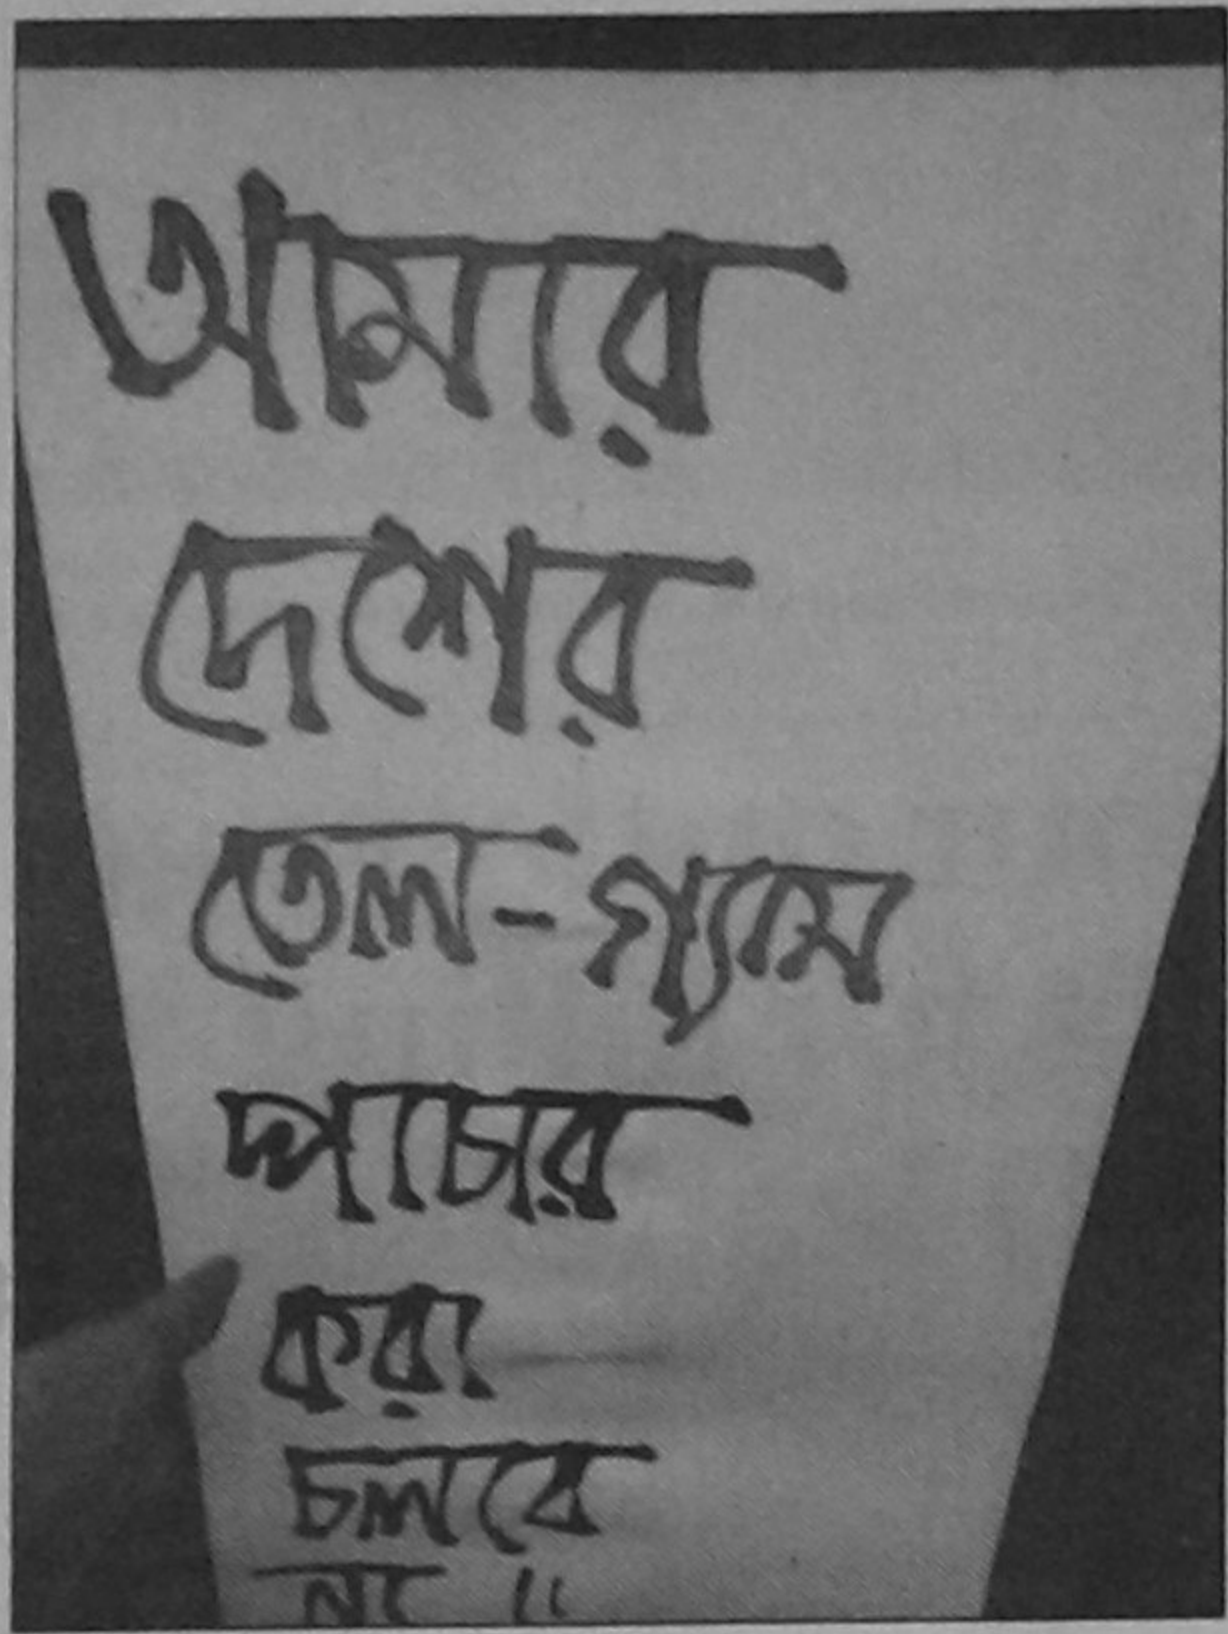 আমার
দেশের
তেল-গ্যাস
পাচার
করা
চলবে
না ।।